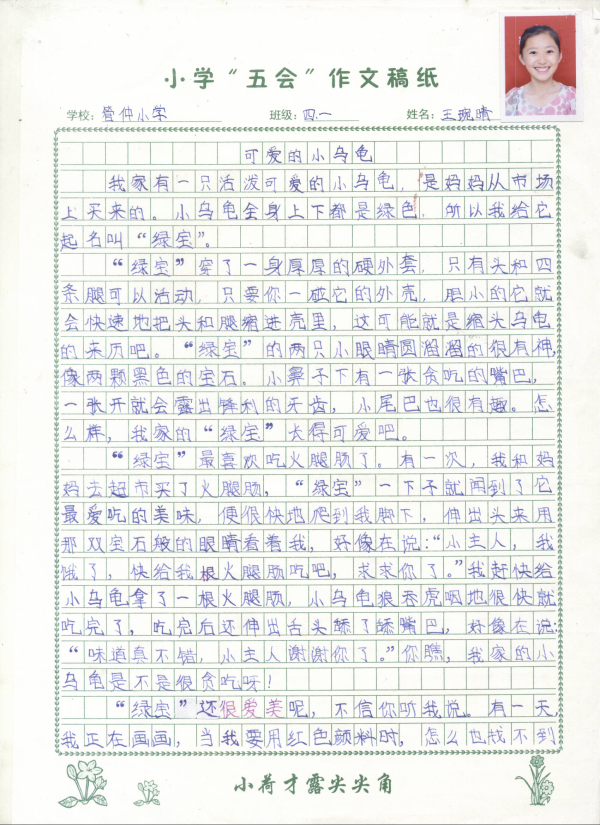 小学“五会”作文稿纸
学校：管仲小学 班级：四.一 姓名：王琬晴
可爱的小乌龟
我家有一只活泼可爱的小乌龟，是妈妈从市场
上买来的。小乌龟全身上下都是绿色，所以我给它
起名叫“绿宝”。
“绿宝”穿了一身厚厚的硬外套，只有头和四
条腿可以活动，只要你一碰它的外壳，胆小的它就
会快速地把头和腿缩进壳里，这可能就是缩头乌龟
的来历吧。“绿宝”的两只小眼睛圆溜溜的很有神，
像两颗黑色的宝石。小鼻子下有一张贪吃的嘴巴，
一张开就会露出锋利的牙齿，小尾巴也很有趣。怎
么样，我家的“绿宝”长得可爱吧。
“绿宝”最喜欢吃火腿肠了。有一次，我和妈
妈去超市买了火腿肠，“绿宝”一下子就闻到了它
最爱吃的美味，便很快地爬到我脚下，伸出头来用
那双宝石般的眼睛看着我，好像在说：“小主人，我
饿了，快给我根火腿肠吃吧，求求你了。”我赶快给
小乌龟拿了一根火腿肠，小乌龟狼吞虎咽地很快就
吃完了，吃完后还伸出舌头舔了舔嘴巴，好像在说：
“味道真不错，小主人谢谢你了。”你瞧，我家的小
乌龟是不是很贪吃呀！
“绿宝”还很爱美呢，不信你听我说。有一天，
我正在画画，当我要用红色颜料时，怎么也找不到
小荷才露尖尖角